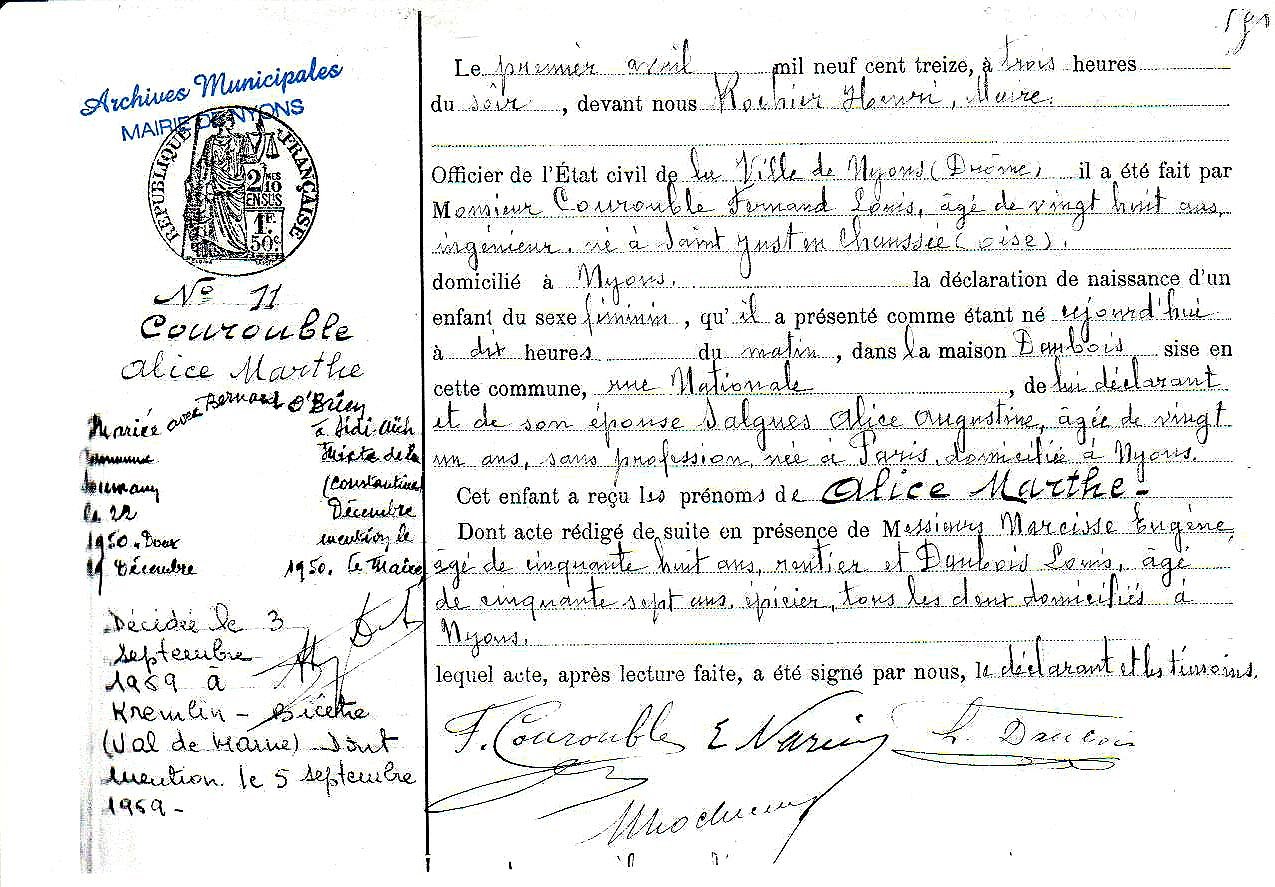 Archives Municipales
MAIRIE DE NYONS
RÉPUBLIQUE FRANÇAISE
2 MES
10
EN SUS
1 F.
50 c
Nº 11
Courouble
Alice Marthe
Mariée avec Bernard
à Sidi Aïch
commune Mixte de la
Soummam (Constantine)
le 22 Décembre
1950. Dont mention le
Décembre 1950. Le Maire
Décédée le 3
septembre
1969 à
Kremlin - Bicêtre
(Val de Marne) Dont
mention le 5 septembre
1969 -
Le premier avril mil neuf cent treize, à trois heures
du soir, devant nous Rochier Henri, Maire.
Officier de l'État civil de la Ville de Nyons (Drôme) il a été fait par
Monsieur Courouble Fernand Louis, âgé de vingt huit ans,
ingénieur, né à Saint Just en Chaussée (Oise).
domicilié à Nyons. la déclaration de naissance d'un
enfant du sexe féminin, qu'il a présenté comme étant né cejourd'hui
à dix heures du matin, dans la maison Daubois sise en
cette commune, rue Nationale, de lui déclarant
et de son épouse Salgues Alice Augustine, âgée de vingt
un ans, sans profession, née à Paris, domiciliée à Nyons.
Cet enfant a reçu les prénoms de Alice Marthe -
Dont acte rédigé de suite en présence de Messieurs Narcisse Eugène,
âgé de cinquante huit ans, rentier et Daubois Louis, âgé
de cinquante sept ans, épicier, tous les deux domiciliés à
Nyons.
lequel acte, après lecture faite, a été signé par nous, le déclarant et les témoins.
F. Courouble E Narcisse L. Daubois